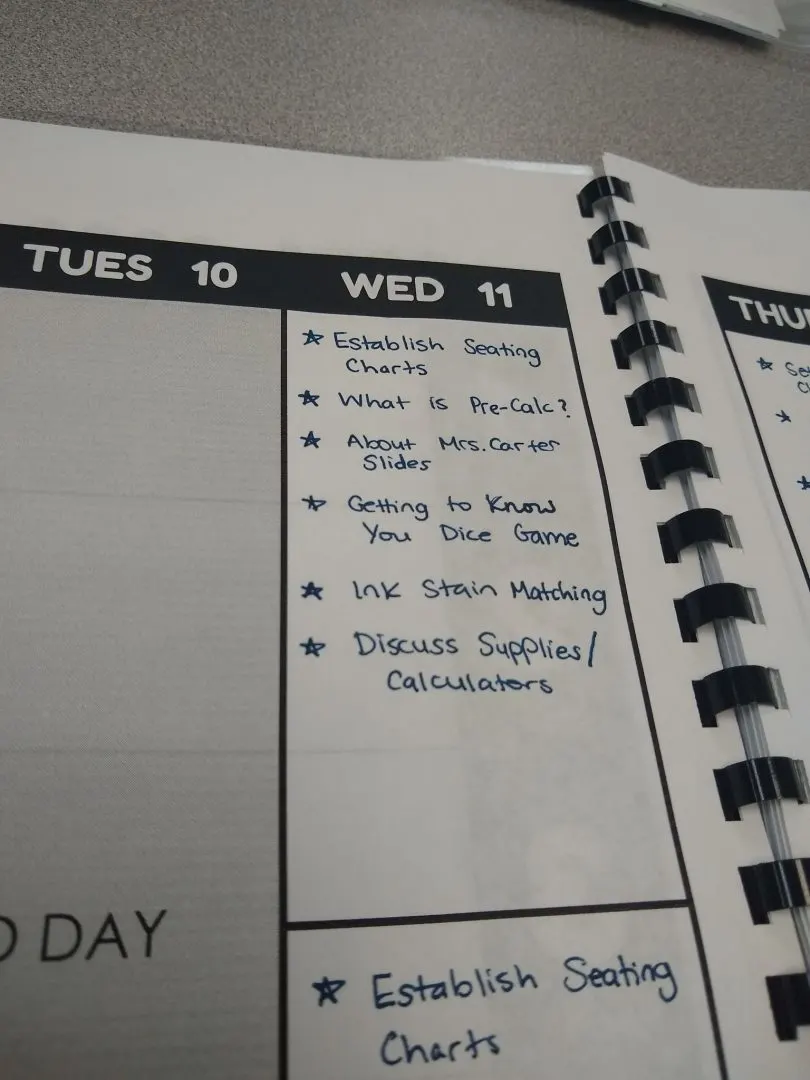 TUES 10
WED 11
☆ Establish Seating
Charts
☆ What is Pre-Calc?
☆ About Mrs. Carter
Slides
☆ Getting to Know
You Dice Game
☆ Ink Stain Matching
☆ Discuss Supplies/
Calculators
DAY
☆ Establish Seating
Charts